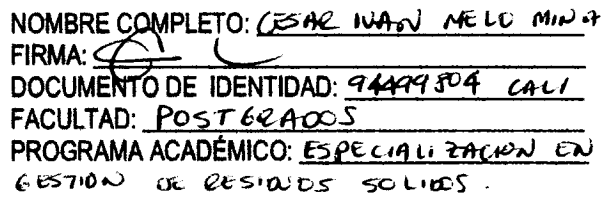 NOMBRE COMPLETO: CESAR IVAN MELO MINA
FIRMA:
DOCUMENTO DE IDENTIDAD: 94499804 CALI
FACULTAD: POSTGRADOS
PROGRAMA ACADÉMICO: ESPECIALIZACION EN
GESTION DE RESIDUOS SOLIDOS.